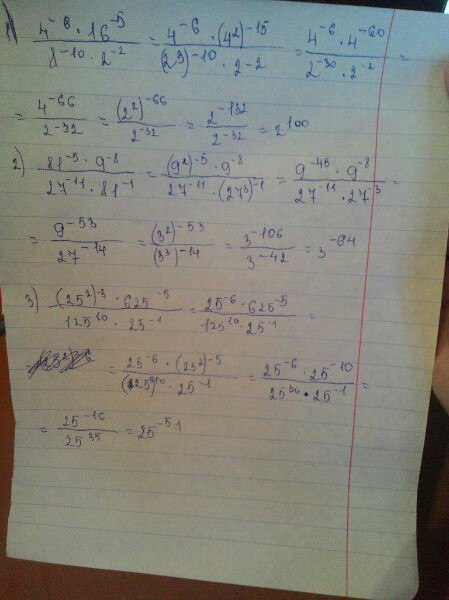 1) (4^-6 · 16^-5)/(8^-10 · 2^-2) = (4^-6 · (4^2)^-15)/((2^3)^-10 · 2^-2) = (4^-6 · 4^-60)/(2^-30 · 2^-2) =
= 4^-66/2^-32 = (2^2)^-66/2^-32 = 2^-132/2^-32 = 2^100
2) (81^-5 · 9^-8)/(27^-11 · 81^-1) = ((9^2)^-5 · 9^-8)/(27^-11 · (27^3)^-1) = (9^-45 · 9^-8)/(27^-11 · 27^3) =
= 9^-53/27^-14 = (3^2)^-53/(3^3)^-14 = 3^-106/3^-42 = 3^-64
3) ((25^2)^-3 · 625^-5)/(125^10 · 25^-1) = (25^-6 · 625^-5)/(125^10 · 25^-1) =
= (25^-6 · (25^2)^-5)/((25)^10 · 25^-1) = (25^-6 · 25^-10)/(25^36 · 25^-1) =
= 25^-16/25^35 = 25^-51